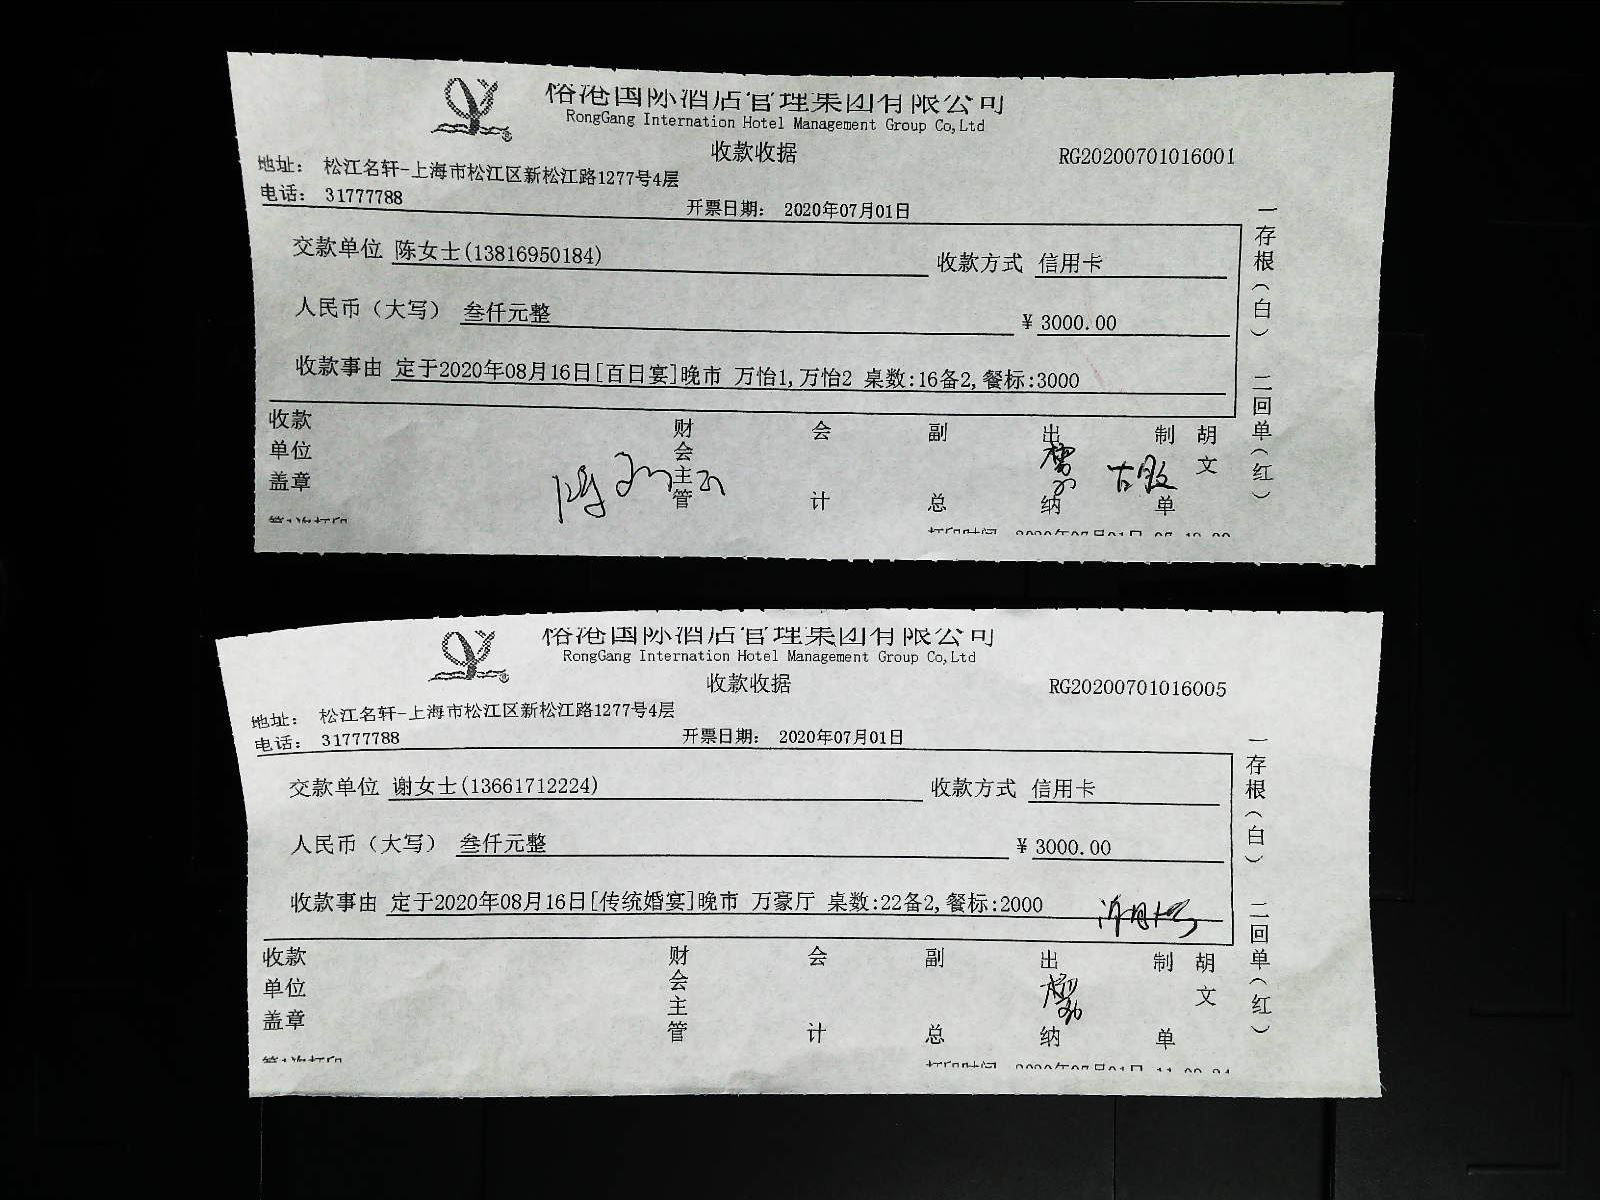 榕港国际酒店管理集团有限公司
RongGang Internation Hotel Management Group Co,Ltd
收款收据
RG20200701016001
地址： 松江名轩-上海市松江区新松江路1277号4层
电话： 31777788
开票日期： 2020年07月01日
交款单位 陈女士(13816950184) 收款方式 信用卡
人民币（大写） 叁仟元整 ¥ 3000.00
收款事由 定于2020年08月16日[百日宴]晚市 万怡1,万怡2 桌数:16备2,餐标:3000
收款单位盖章 财会主管 会计 副总 出纳 制单 胡文
一存根（白） 二回单（红）
第1次打印
打印时间 2020年07月01日
榕港国际酒店管理集团有限公司
RongGang Internation Hotel Management Group Co,Ltd
收款收据
RG20200701016005
地址： 松江名轩-上海市松江区新松江路1277号4层
电话： 31777788
开票日期： 2020年07月01日
交款单位 谢女士(13661712224) 收款方式 信用卡
人民币（大写） 叁仟元整 ¥ 3000.00
收款事由 定于2020年08月16日[传统婚宴]晚市 万豪厅 桌数:22备2,餐标:2000
收款单位盖章 财会主管 会计 副总 出纳 制单 胡文
一存根（白） 二回单（红）
第1次打印
打印时间 2020年07月01日